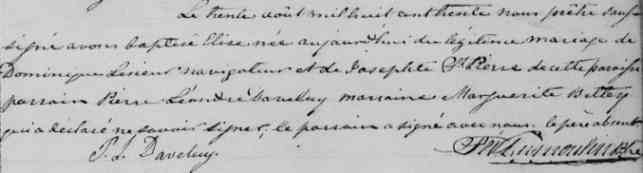 Le trente août mil huit cent trente nous prêtre sous
signé avons baptisé Elise née aujourd'hui du légitime mariage de
Dominique Lesieur navigateur et de Josephte St Pierre de cette paroisse
parrain Pierre Léandre Daveluy marraine Marguerite
qui a déclaré ne savoir signer, le parrain a signé avec nous. le père absent
P. L. Daveluy Ptre